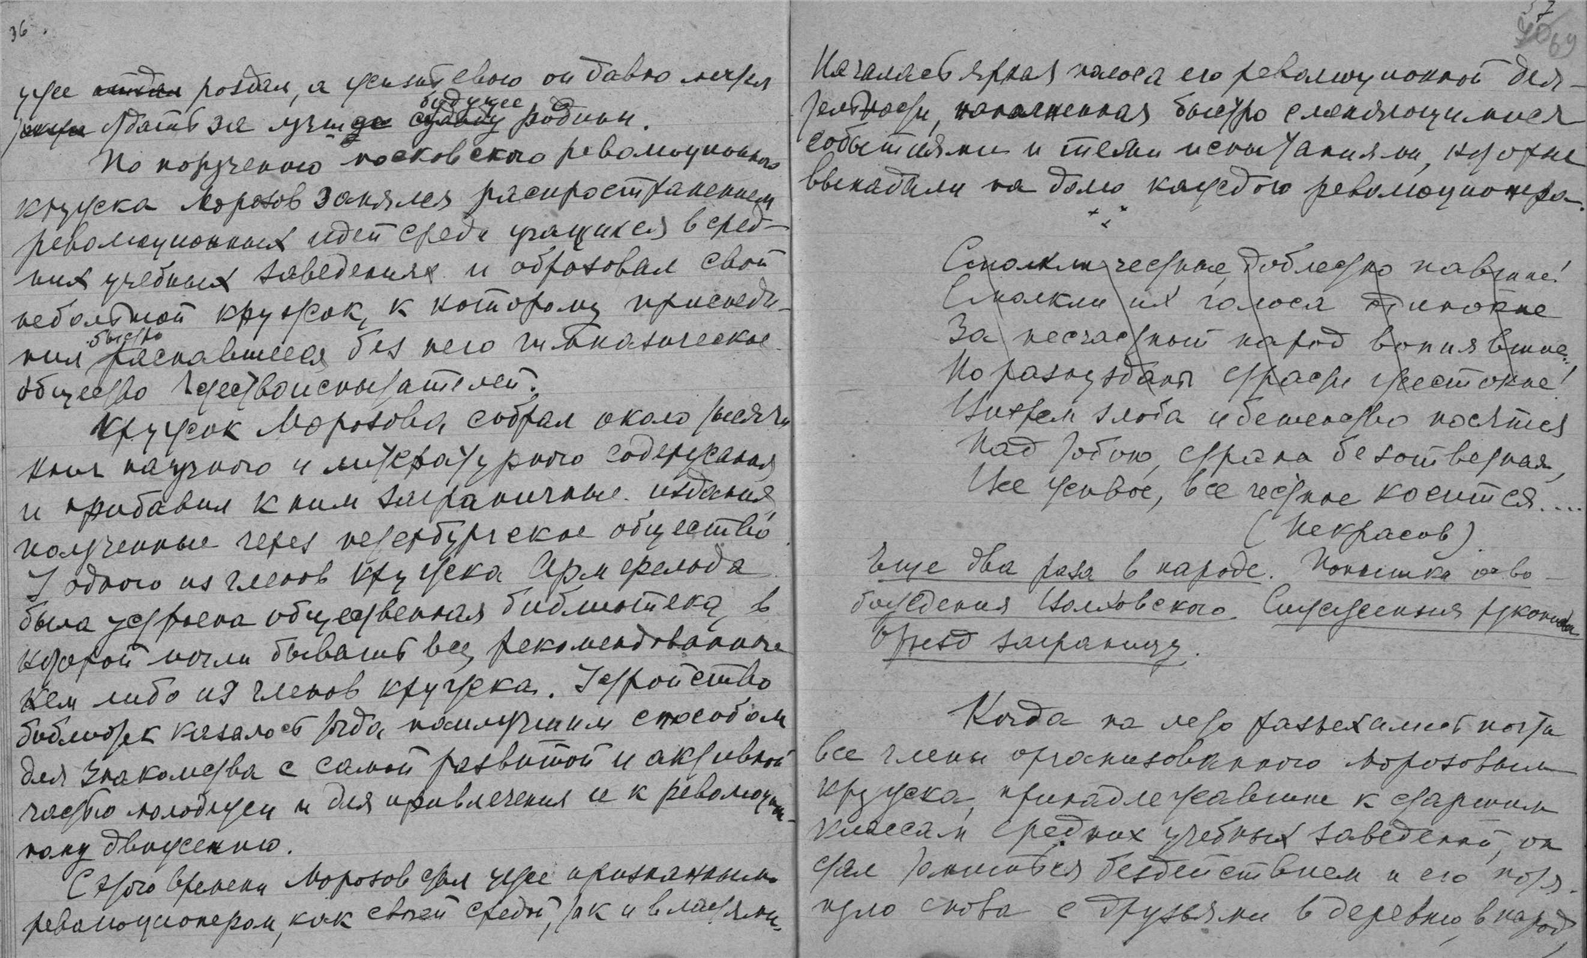 36.
уже отдал роздал, а жизнь свою он давно мечтал
отдать за лучшее будущее родины.
По поручению московского революционного
кружка Морозов занялся распространением
революционных идей среди учащихся в сред-
них учебных заведениях и образовал свой
небольшой кружок, к которому присоеди-
нил быстро распавшееся без него гимназическое
общество естествоиспытателей.
Кружок Морозова собрал около тысячи
книг научного и литературного содержания
и прибавил к ним заграничные издания,
полученные через петербургское общество.
У одного из членов кружка Армфельда
была устроена общественная библиотека, в
которой могли бывать все, рекомендованные
кем либо из членов кружка. Устройство
библиотек казалось тогда наилучшим способом
для знакомства с самой развитой и активной
частью молодежи и для привлечения ее к революцион-
ному движению.
С этого времени Морозов стал уже признанным
революционером, как своей средой, так и властями.
37
69
Началась яркая полоса его революционной дея-
тельности, наполненная быстро сменяющимися
событиями и теми испытаниями, которые
выпадали на долю каждого революционера.
Смолкли честные, доблестно павшие!
Смолкли их голоса одинокие
За несчастный народ вопиявшие..
Но разнузданы страсти жестокие!
Вихрем злоба и бешенство носятся
Над тобою, страна безответная,
Все живое, все честное косится....
(Некрасов)
Еще два раза в народе. Попытка осво-
бождения Волховского. Сожженная рукопись
Отъезд заграницу.
Когда на лето разъехались почти
все члены организованного Морозовым
кружка, принадлежавшие к старшим
классам средних учебных заведений, он
стал томиться бездействием и его потя-
нуло снова с друзьями в деревню, в народ,